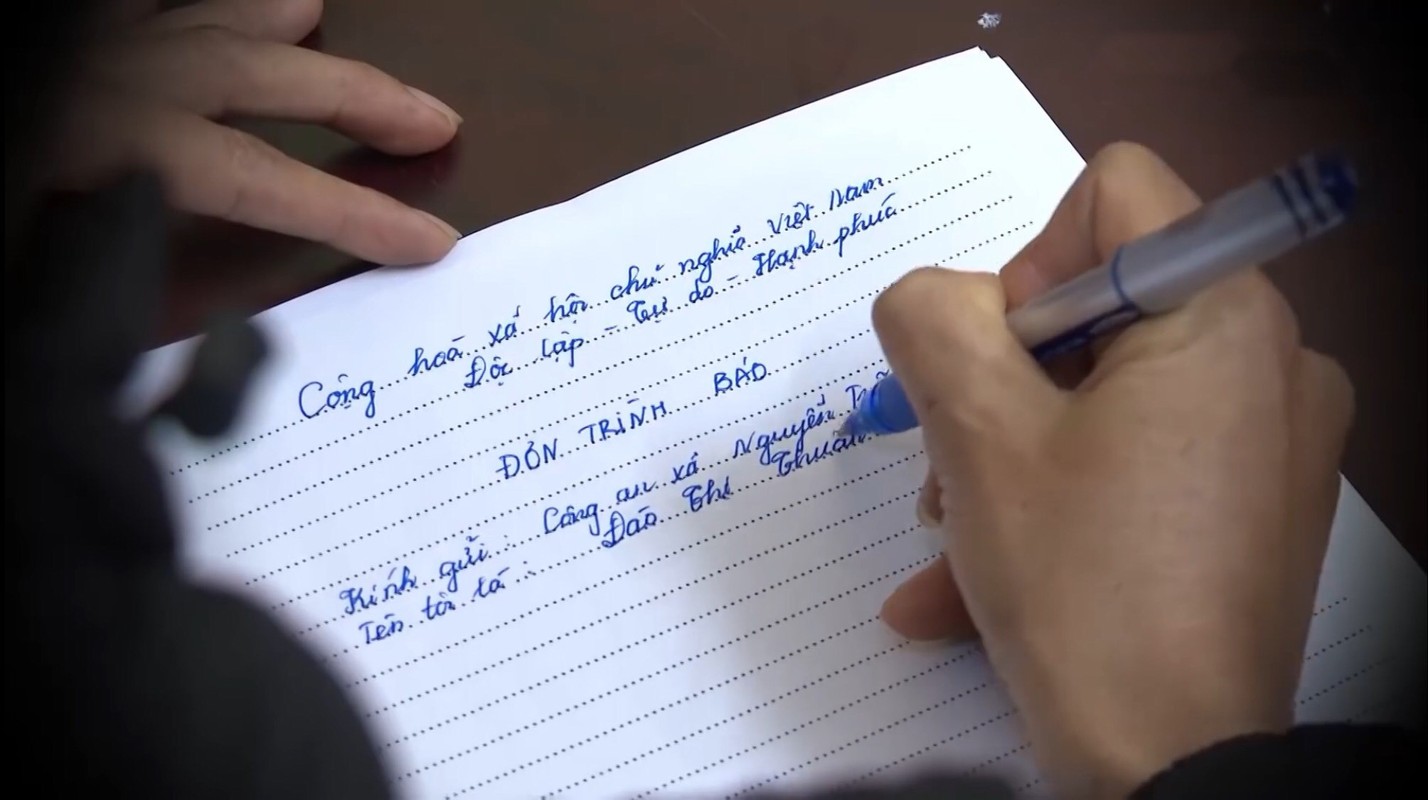 Cộng hoà xã hội chủ nghĩa Việt Nam
Độc lập - Tự do - Hạnh phúc
ĐƠN TRÌNH BÁO
Kính gửi : Công an xã Nguyễn
Tên tôi là : Đào Thị Thuần